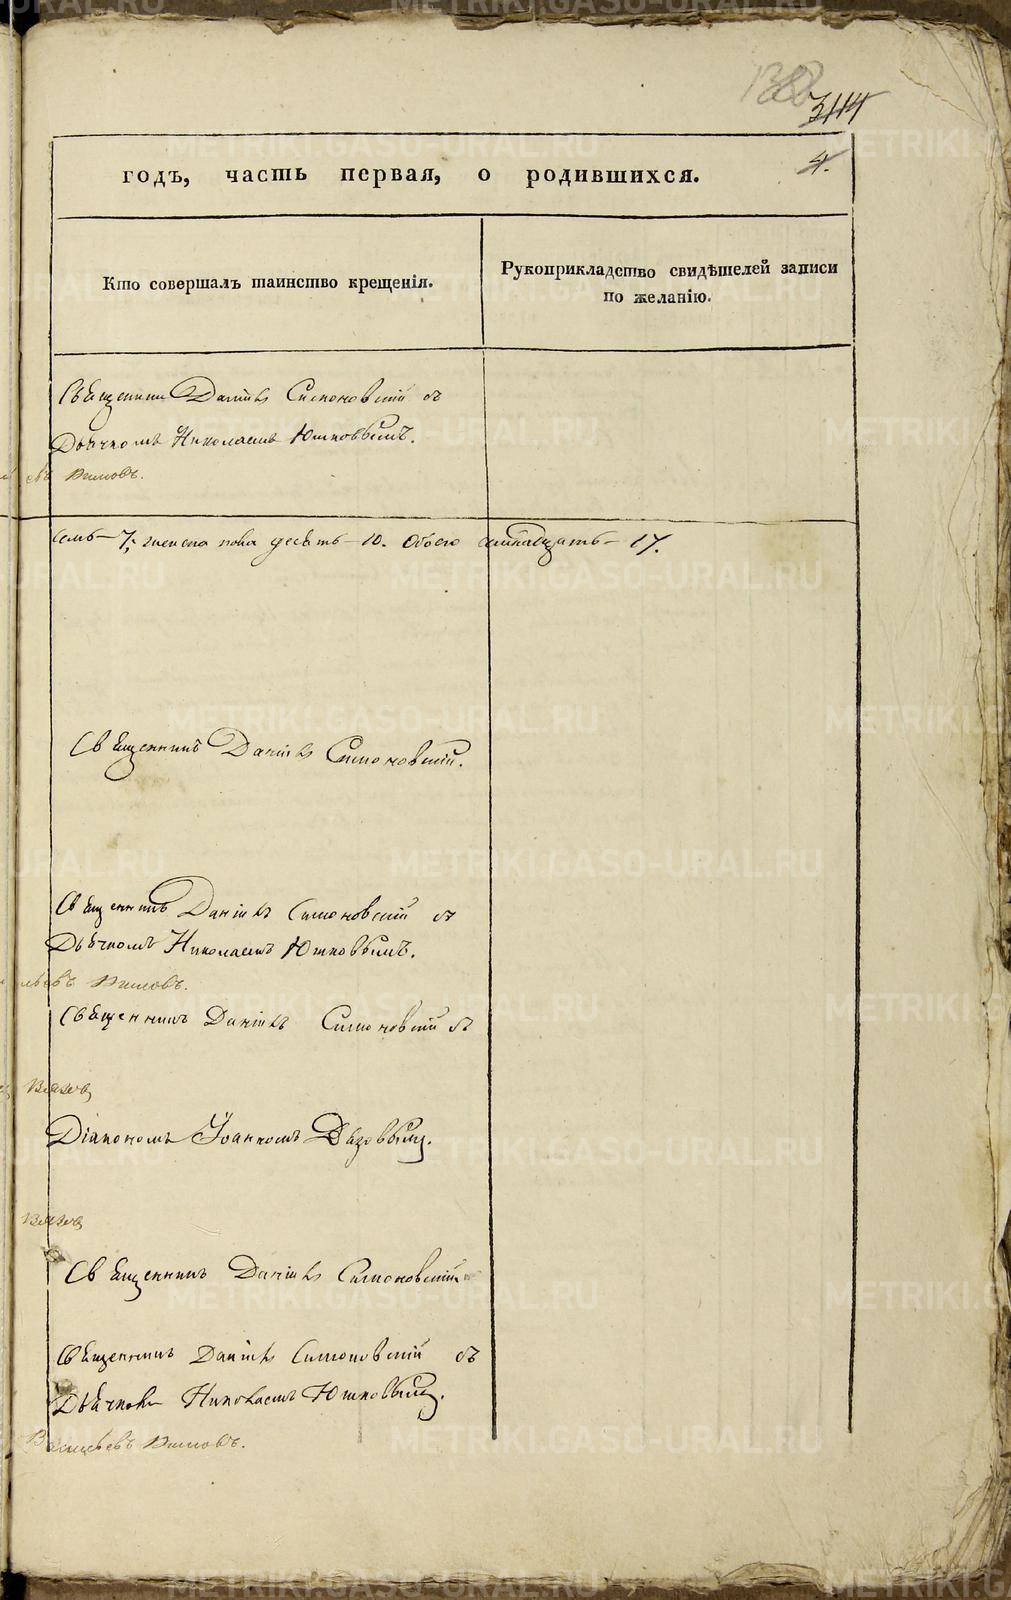 3114
4.
годъ, часть первая, о родившихся.
Кто совершалъ таинство крещенія.
Рукоприкладство свидѣтелей записи
по желанію.
Священникъ Даніилъ Симоновскій съ
Дьячкомъ Николаемъ Юшковымъ.
семь – 7; женска пола десять – 10. Обоего семнадцать – 17.
Священникъ Даніилъ Симоновскій.
Священникъ Даніилъ Симоновскій съ
Дьячкомъ Николаемъ Юшковымъ.
Священникъ Даніилъ Симоновскій съ
Діакономъ Іоанномъ
Священникъ Даніилъ Симоновскій
Священникъ Даніилъ Симоновскій съ
Дьячкомъ Николаемъ Юшковымъ.
METRIKI.GASO-URAL.RU